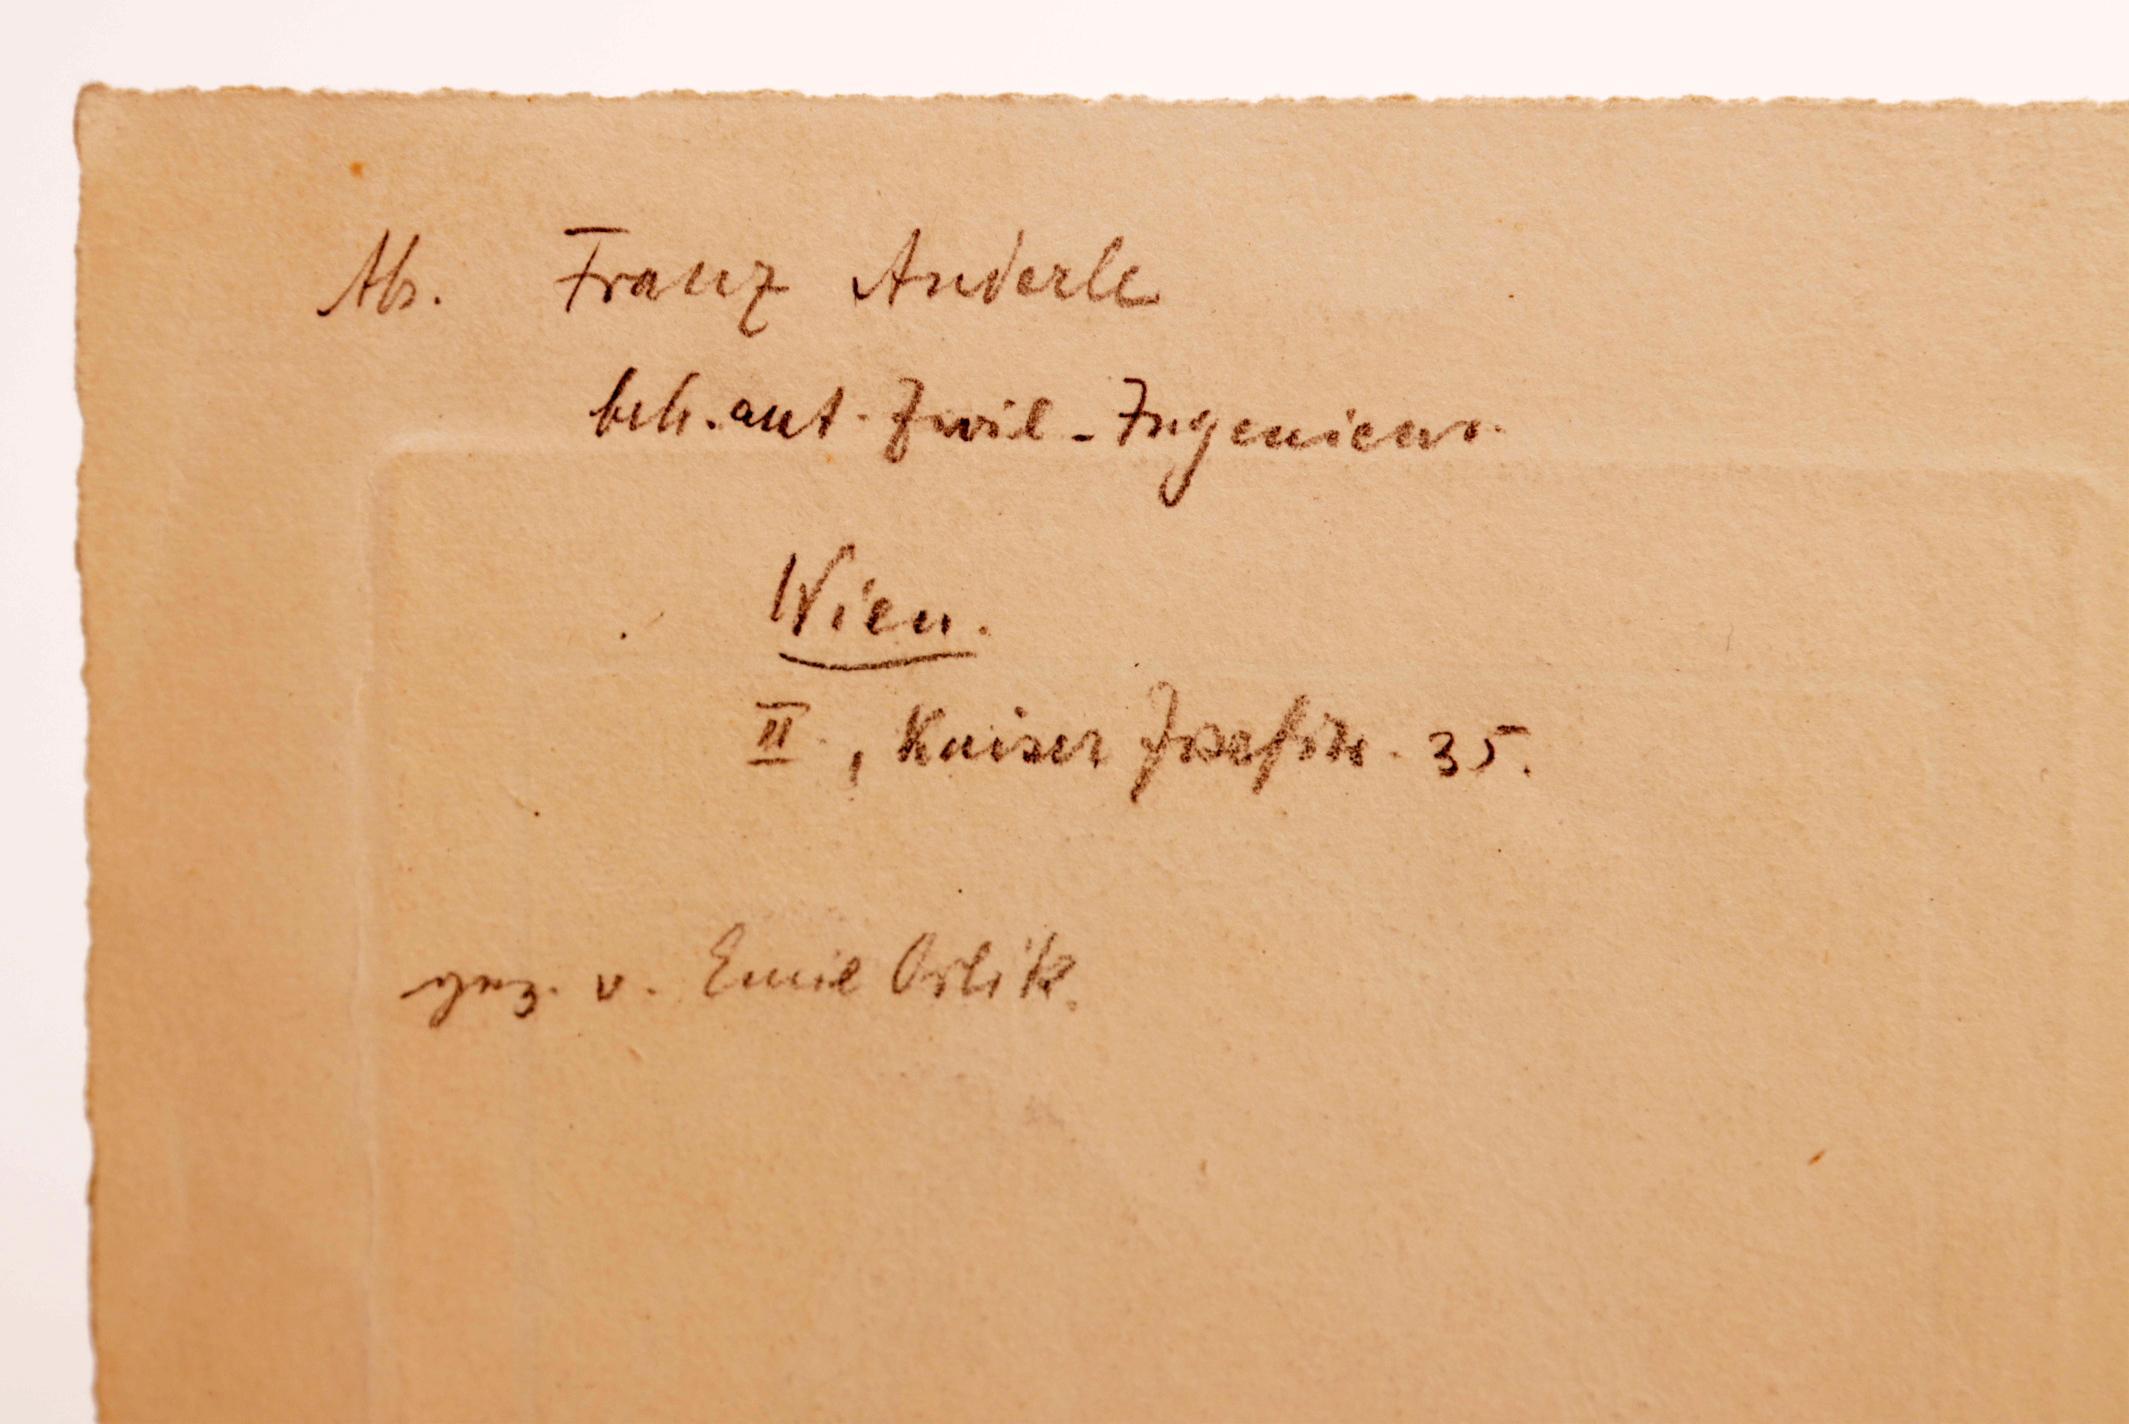 Abs. Franz Anderle
beh. aut. Zivil-Ingenieur.
Wien.
II., Kaiser Josefstr. 35.
gez. v. Emil Orlik.